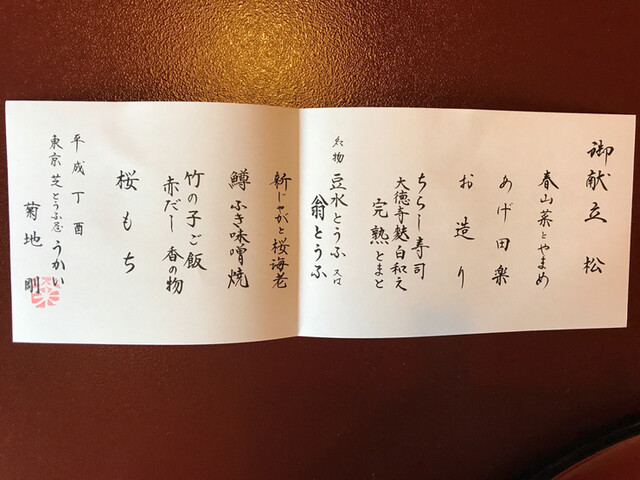 御献立 松
春山菜とやまめ
あげ田楽
お造り
ちらし寿司
大徳寺麩白和え
完熟とまと
名物 豆水とうふ 又は
翁とうふ
新じゃがと桜海老
鱒ふき味噌焼
竹の子ご飯
赤だし 香の物
桜もち
平成丁酉
東京芝とうふ屋うかい
菊地 剛